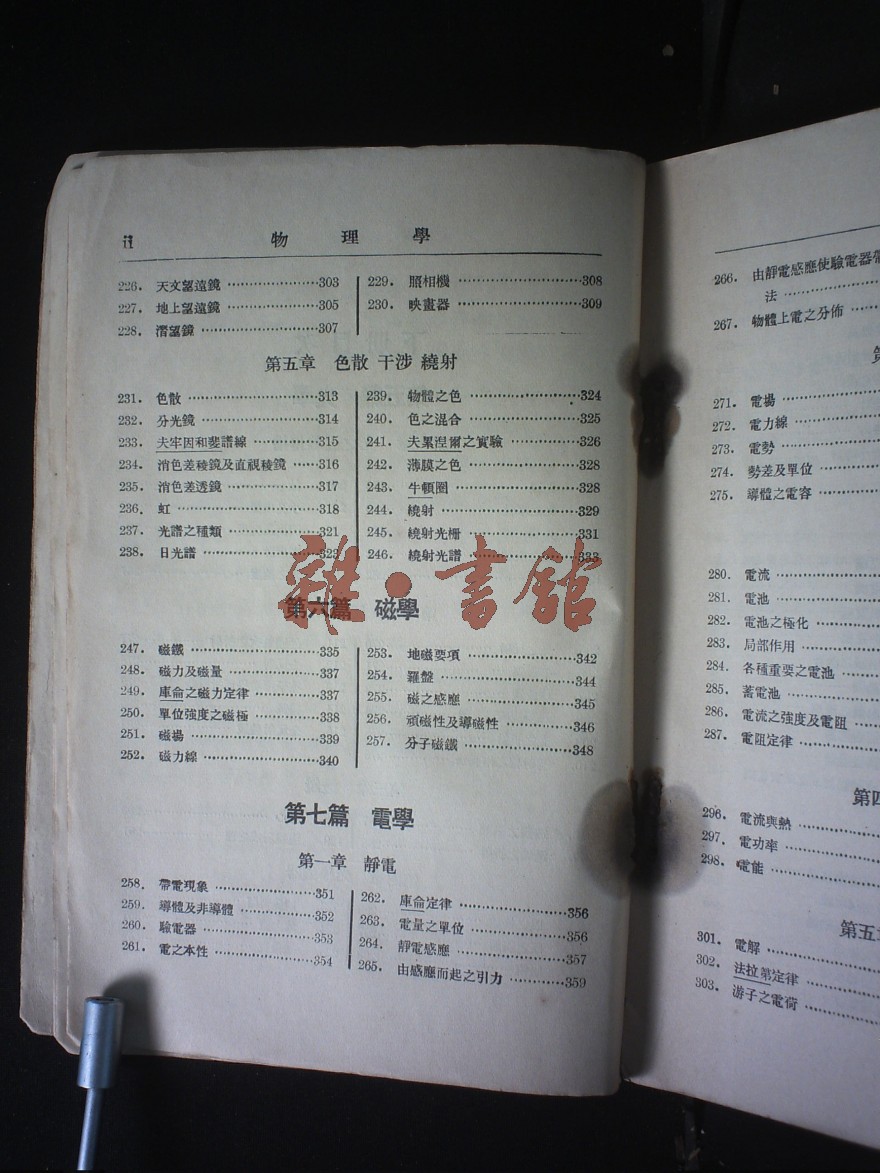 ii 物理學
226. 天文望遠鏡 ……303
227. 地上望遠鏡 ……305
228. 潛望鏡 ……307
229. 照相機 ……308
230. 映畫器 ……309
第五章 色散 干涉 繞射
231. 色散 ……313
232. 分光鏡 ……314
233. 夫牢因和斐譜線 ……315
234. 消色差稜鏡及直視稜鏡 ……316
235. 消色差透鏡 ……317
236. 虹 ……318
237. 光譜之種類 ……321
238. 日光譜 ……322
239. 物體之色 ……324
240. 色之混合 ……325
241. 夫累涅爾之實驗 ……326
242. 薄膜之色 ……328
243. 牛頓圈 ……328
244. 繞射 ……329
245. 繞射光柵 ……331
246. 繞射光譜 ……333
雜·書館
第六篇 磁學
247. 磁鐵 ……335
248. 磁力及磁量 ……337
249. 庫侖之磁力定律 ……337
250. 單位強度之磁極 ……338
251. 磁場 ……339
252. 磁力線 ……340
253. 地磁要項 ……342
254. 羅盤 ……344
255. 磁之感應 ……345
256. 頑磁性及導磁性 ……346
257. 分子磁鐵 ……348
第七篇 電學
第一章 靜電
258. 帶電現象 ……351
259. 導體及非導體 ……352
260. 驗電器 ……353
261. 電之本性 ……354
262. 庫侖定律 ……356
263. 電量之單位 ……356
264. 靜電感應 ……357
265. 由感應而起之引力 ……359
266. 由靜電感應使驗電器帶
法 ……
267. 物體上電之分佈 ……
271. 電場 ……
272. 電力線 ……
273. 電勢 ……
274. 勢差及單位 ……
275. 導體之電容 ……
280. 電流 ……
281. 電池 ……
282. 電池之極化 ……
283. 局部作用 ……
284. 各種重要之電池 ……
285. 蓄電池 ……
286. 電流之強度及電阻 ……
287. 電阻定律 ……
第四
296. 電流與熱 ……
297. 電功率 ……
298. 電能 ……
第五章
301. 電解 ……
302. 法拉第定律 ……
303. 游子之電荷 ……